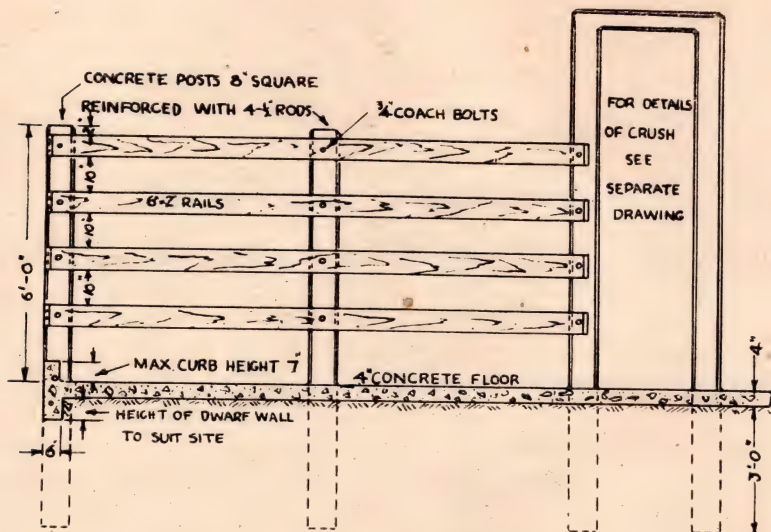 CONCRETE POSTS 8" SQUARE
REINFORCED WITH 4-½" RODS
¾" COACH BOLTS
FOR DETAILS
OF CRUSH
SEE
SEPARATE
DRAWING
10"
6"-2" RAILS
10"
10"
6'-0"
MAX. CURB HEIGHT 7"
4" CONCRETE FLOOR
4"
HEIGHT OF DWARF WALL
TO SUIT SITE
6"
3'-0"